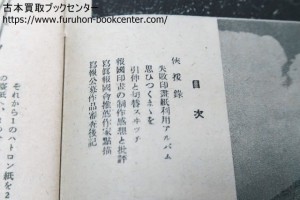 古本買取ブックセンター
www.furuhon-bookcenter.com/
目次
失敗印畫紙利用アルバム
思ひつくまゝを
引伸と切替スヰッチ
報國印畫の制作感想と批評
寫眞報國會推薦作家點描
寫報公募作品審査後記
それから1
のハトロン紙を2